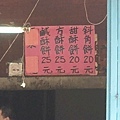 斜角餅20元
甜酥餅20元
方酥餅25元
鹹酥餅25元